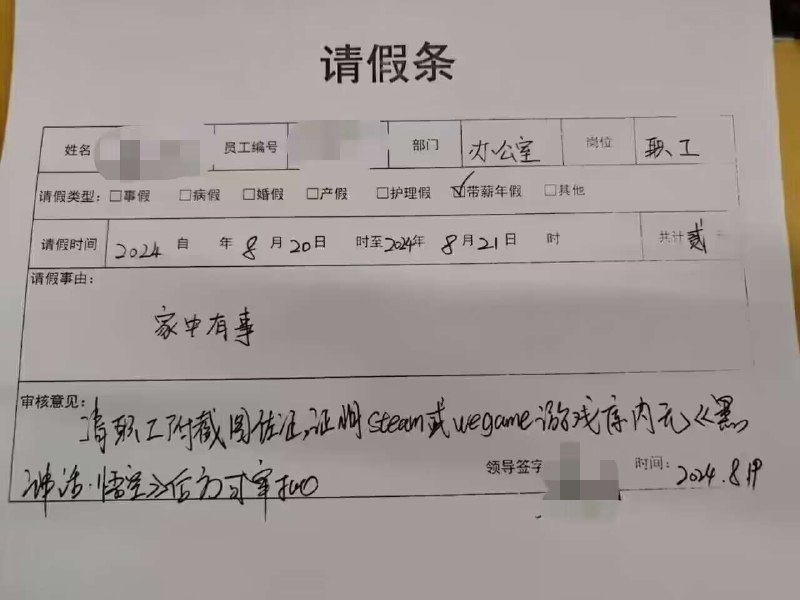 请假条
姓名 员工编号 部门 办公室 岗位 职工
请假类型: □事假 □病假 □婚假 □产假 □护理假 ☑带薪年假 □其他
请假时间 2024 自 年 8 月 20 日 时至 2024 年 8 月 21 日 时 共计 贰
请假事由:
家中有事
审核意见:
请职工附截图佐证,证明steam或wegame游戏库内无《黑
神话·悟空》后方可审批
领导签字 时间: 2024.8.19